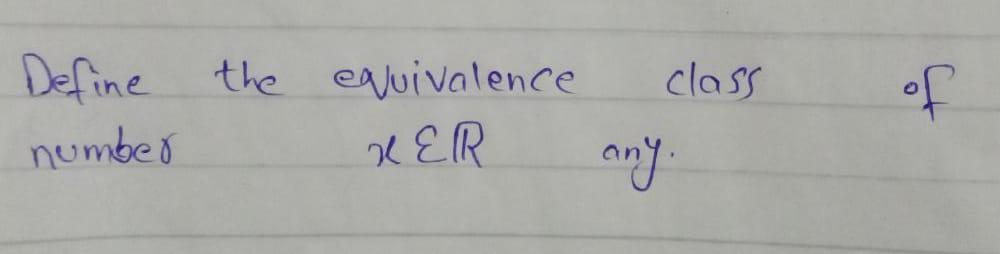 Define the equivalence class of
number x ∈ ℝ any.